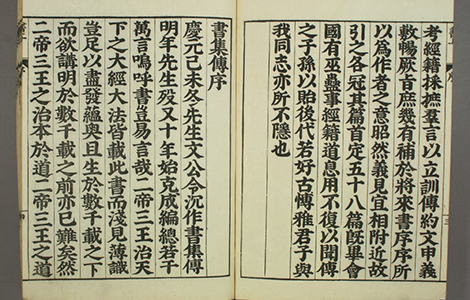 考經籍採摭羣言以立訓傳約文申義
敷暢厥旨庶幾有補於將來書序序所
以爲作者之意昭然義見宜相附近故
引之各冠其篇首定五十八篇旣畢會
國有巫蠱事經籍道息用不復以聞傳
之子孫以貽後代若好古博雅君子與
我同志亦所不隱也
書集傳序
慶元己未冬先生文公令沈作書集傳
明年先生歿又十年始克成編總若干
萬言嗚呼書豈易言哉二帝三王治天
下之大經大法皆載此書而淺見薄識
豈足以盡發蘊奧且生於數千載之下
而欲講明於數千載之前亦已難矣然
二帝三王之治本於道二帝三王之道